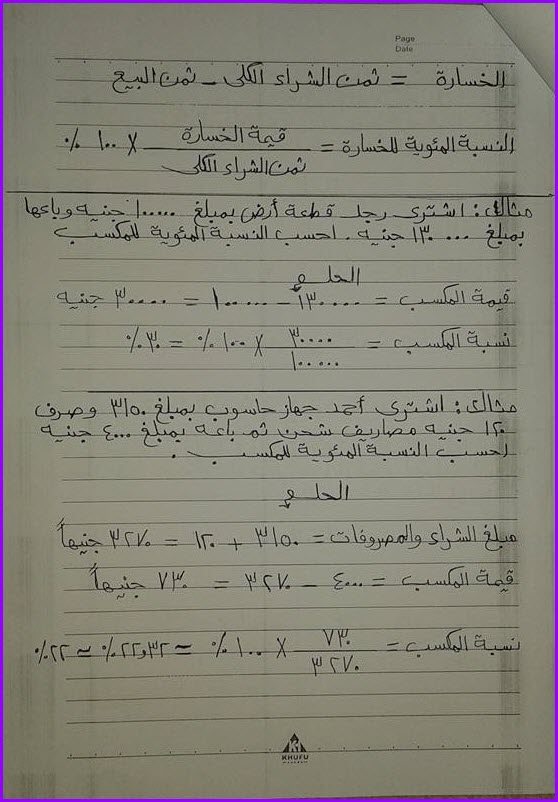 Page
Date
الخسارة = ثمن الشراء الكلى - ثمن البيع
النسبة المئوية للخسارة = قيمة الخسارة / ثمن الشراء الكلى × ١٠٠ %
مثال: اشترى رجل قطعة أرض بمبلغ ١٠٠٠٠٠ جنيه وباعها
بمبلغ ١٣٠٠٠٠ جنيه. احسب النسبة المئوية للمكسب
الحل
قيمة المكسب = ١٣٠٠٠٠ - ١٠٠٠٠٠ = ٣٠٠٠٠ جنيه
نسبة المكسب = ٣٠٠٠٠ / ١٠٠٠٠٠ × ١٠٠ % = ٣٠ %
مثال: اشترى أحمد جهاز حاسوب بمبلغ ٣١٥٠ وصرف
١٢٠ جنيه مصاريف شحن ثم باعه بمبلغ ٤٠٠٠ جنيه
احسب النسبة المئوية للمكسب.
الحل
مبلغ الشراء والمصروفات = ٣١٥٠ + ١٢٠ = ٣٢٧٠ جنيهاً
قيمة المكسب = ٤٠٠٠ - ٣٢٧٠ = ٧٣٠ جنيهاً
نسبة المكسب = ٧٣٠ / ٣٢٧٠ × ١٠٠ % ≈ ٢٢,٣٢ % ≈ ٢٢ %
KHUFU